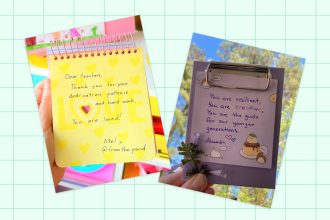 Dear teachers,
Thank you for your
dedication, patience
and hard work.
You are loved!
Mel x
@fromthepond
You are resilient,
You are creative,
You are the guide
for our younger
generation!
Alexandra